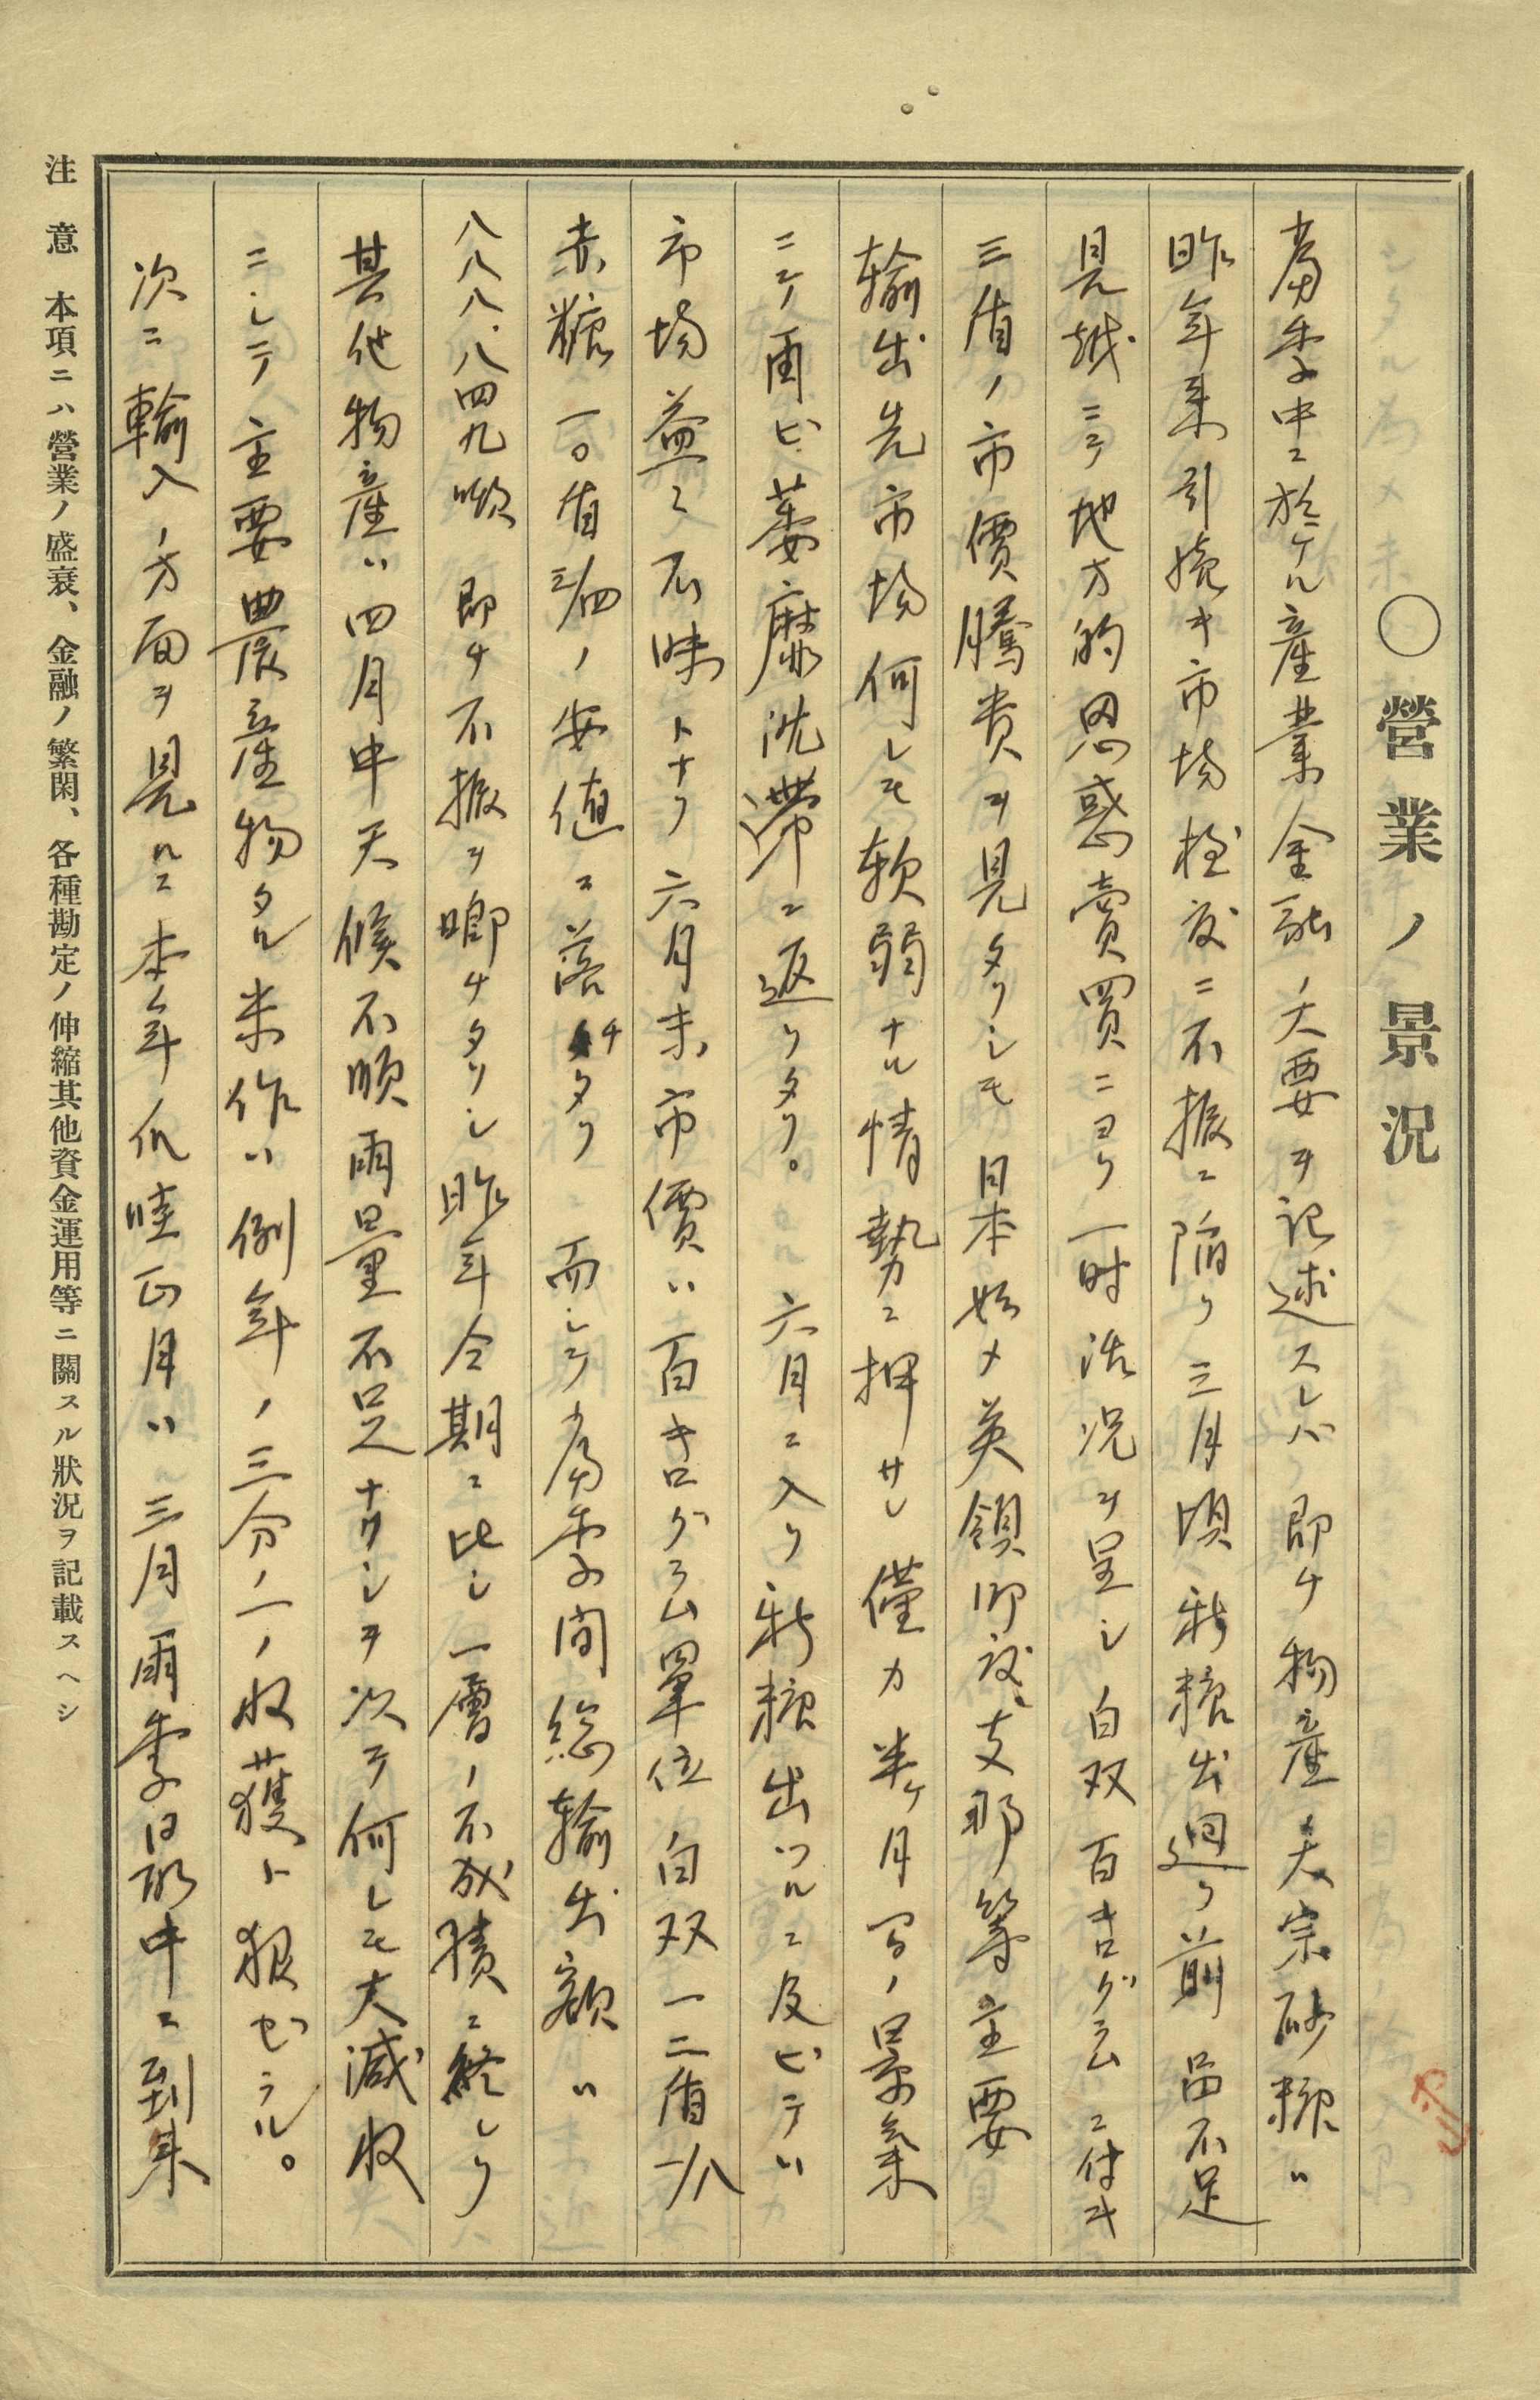 〇營業ノ景況
當季中ニ於ケル産業金融ノ大要ヲ記述スレバ 即チ物産大宗砂糖ハ
昨年来引續キ市場極度ニ不振ニ陥リ三月頃新糖出廻リ前品不足
見越ニテ地方的思惑賣買ニヨリ一時活況ヲ呈シ白双百キログラムニ付キ
三盾ノ市價騰貴ヲ見タリシモ 日本始メ英領印度支那等主要
輸出先市場何レモ軟弱ナル情勢ニ押サレ 僅カ半ケ月間ノ景氣
ニシテ再ビ萎靡沈滞ニ返リタリ。 六月ニ入リ新糖出ヅルニ及ビテハ
市場益々不味トナリ 六月末市價ハ百キログラム單位白双一二盾一/八
赤糖一〇盾三/四ノ安値ニ落チタリ 而シテ當季間総輸出額ハ
八八八.八四九噸 即チ不振ヲ唧チタリシ昨年仝期ニ比シ一層ノ不成績ニ終レリ
其他物産ハ四月中天候不順雨量不足ナリシヲ以テ何レモ大減收
ニシテ主要農産物タル米作ハ例年ノ三分ノ一ノ收獲ト報ゼラル。
次ニ輸入ノ方面ヲ見ルニ本年爪哇正月ハ三月雨季最中ニ到来
注意 本項ニハ營業ノ盛衰、金融ノ繁閑、各種勘定ノ伸縮其他資金運用等ニ關スル狀況ヲ記載スヘシ